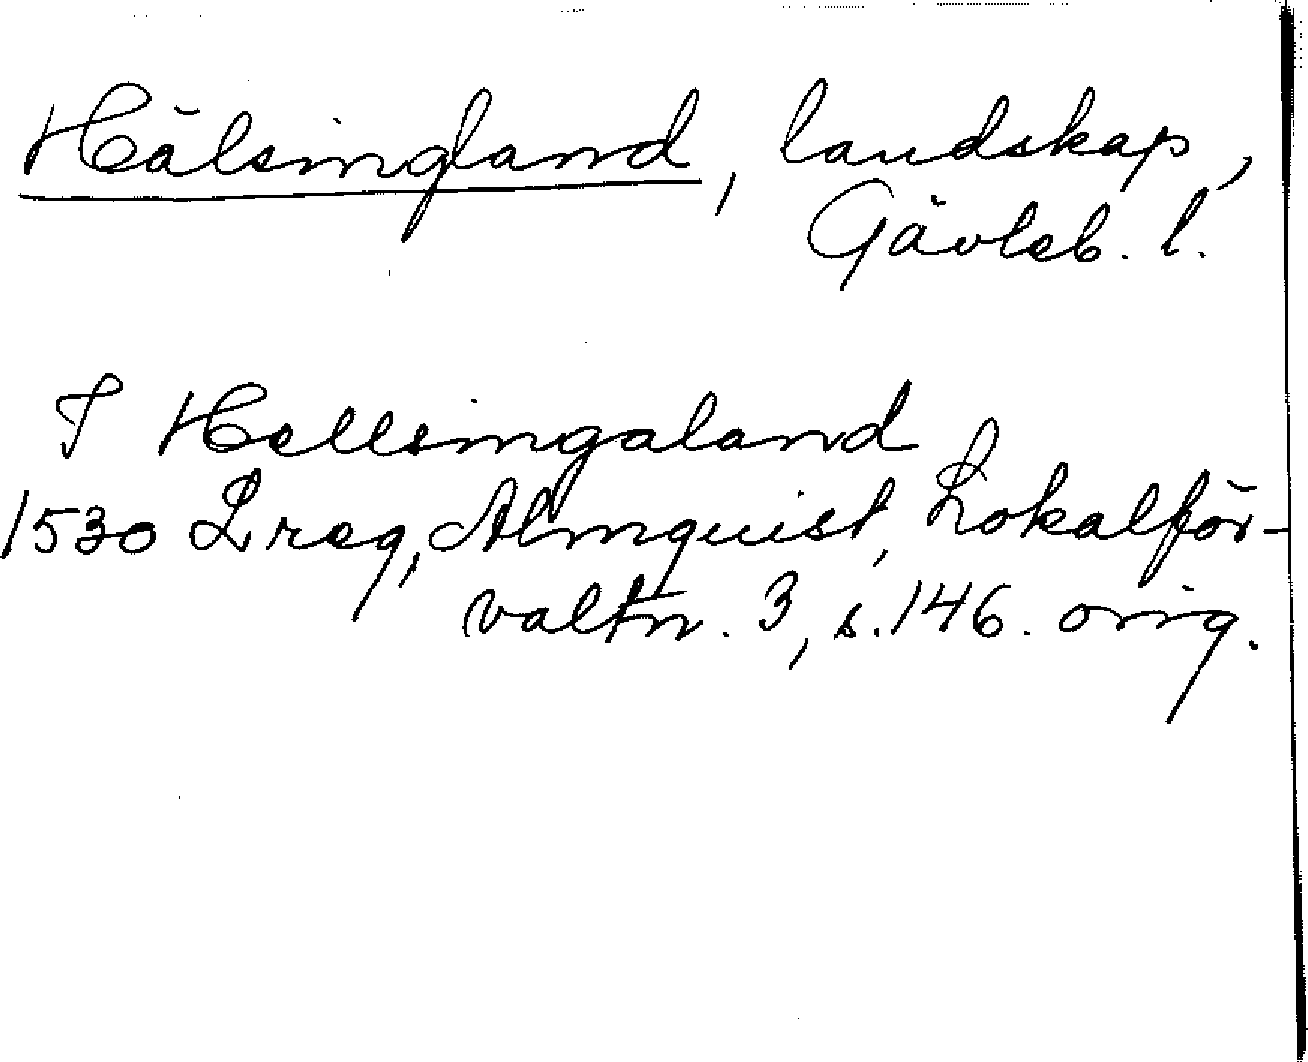 Hälsingland, landskap,
Gävleb. l.
I Hellsingaland
1530 Lreg, Almquist, Lokalför-
valtn. 3, s. 146. orig.